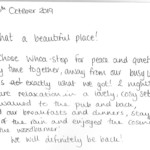 October 2019
hat a beautiful place!
chose Whao-stop for peace and quiet
y time together, away from our busy
is exactly what we got! 2 nights
ure relaxation in a lovely, cosy set
walked to the pub and back,
our breakfasts and dinners, stay
of the rain and enjoyed the cosine
the woodburner.
We will definitely be back!